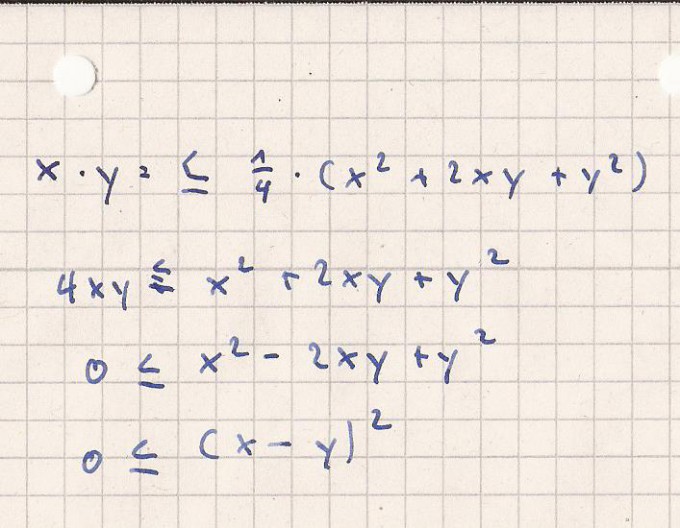 x · y = ≤ 1/4 · (x² + 2xy + y²)
4xy ≤ x² + 2xy + y²
0 ≤ x² - 2xy + y²
0 ≤ (x - y)²